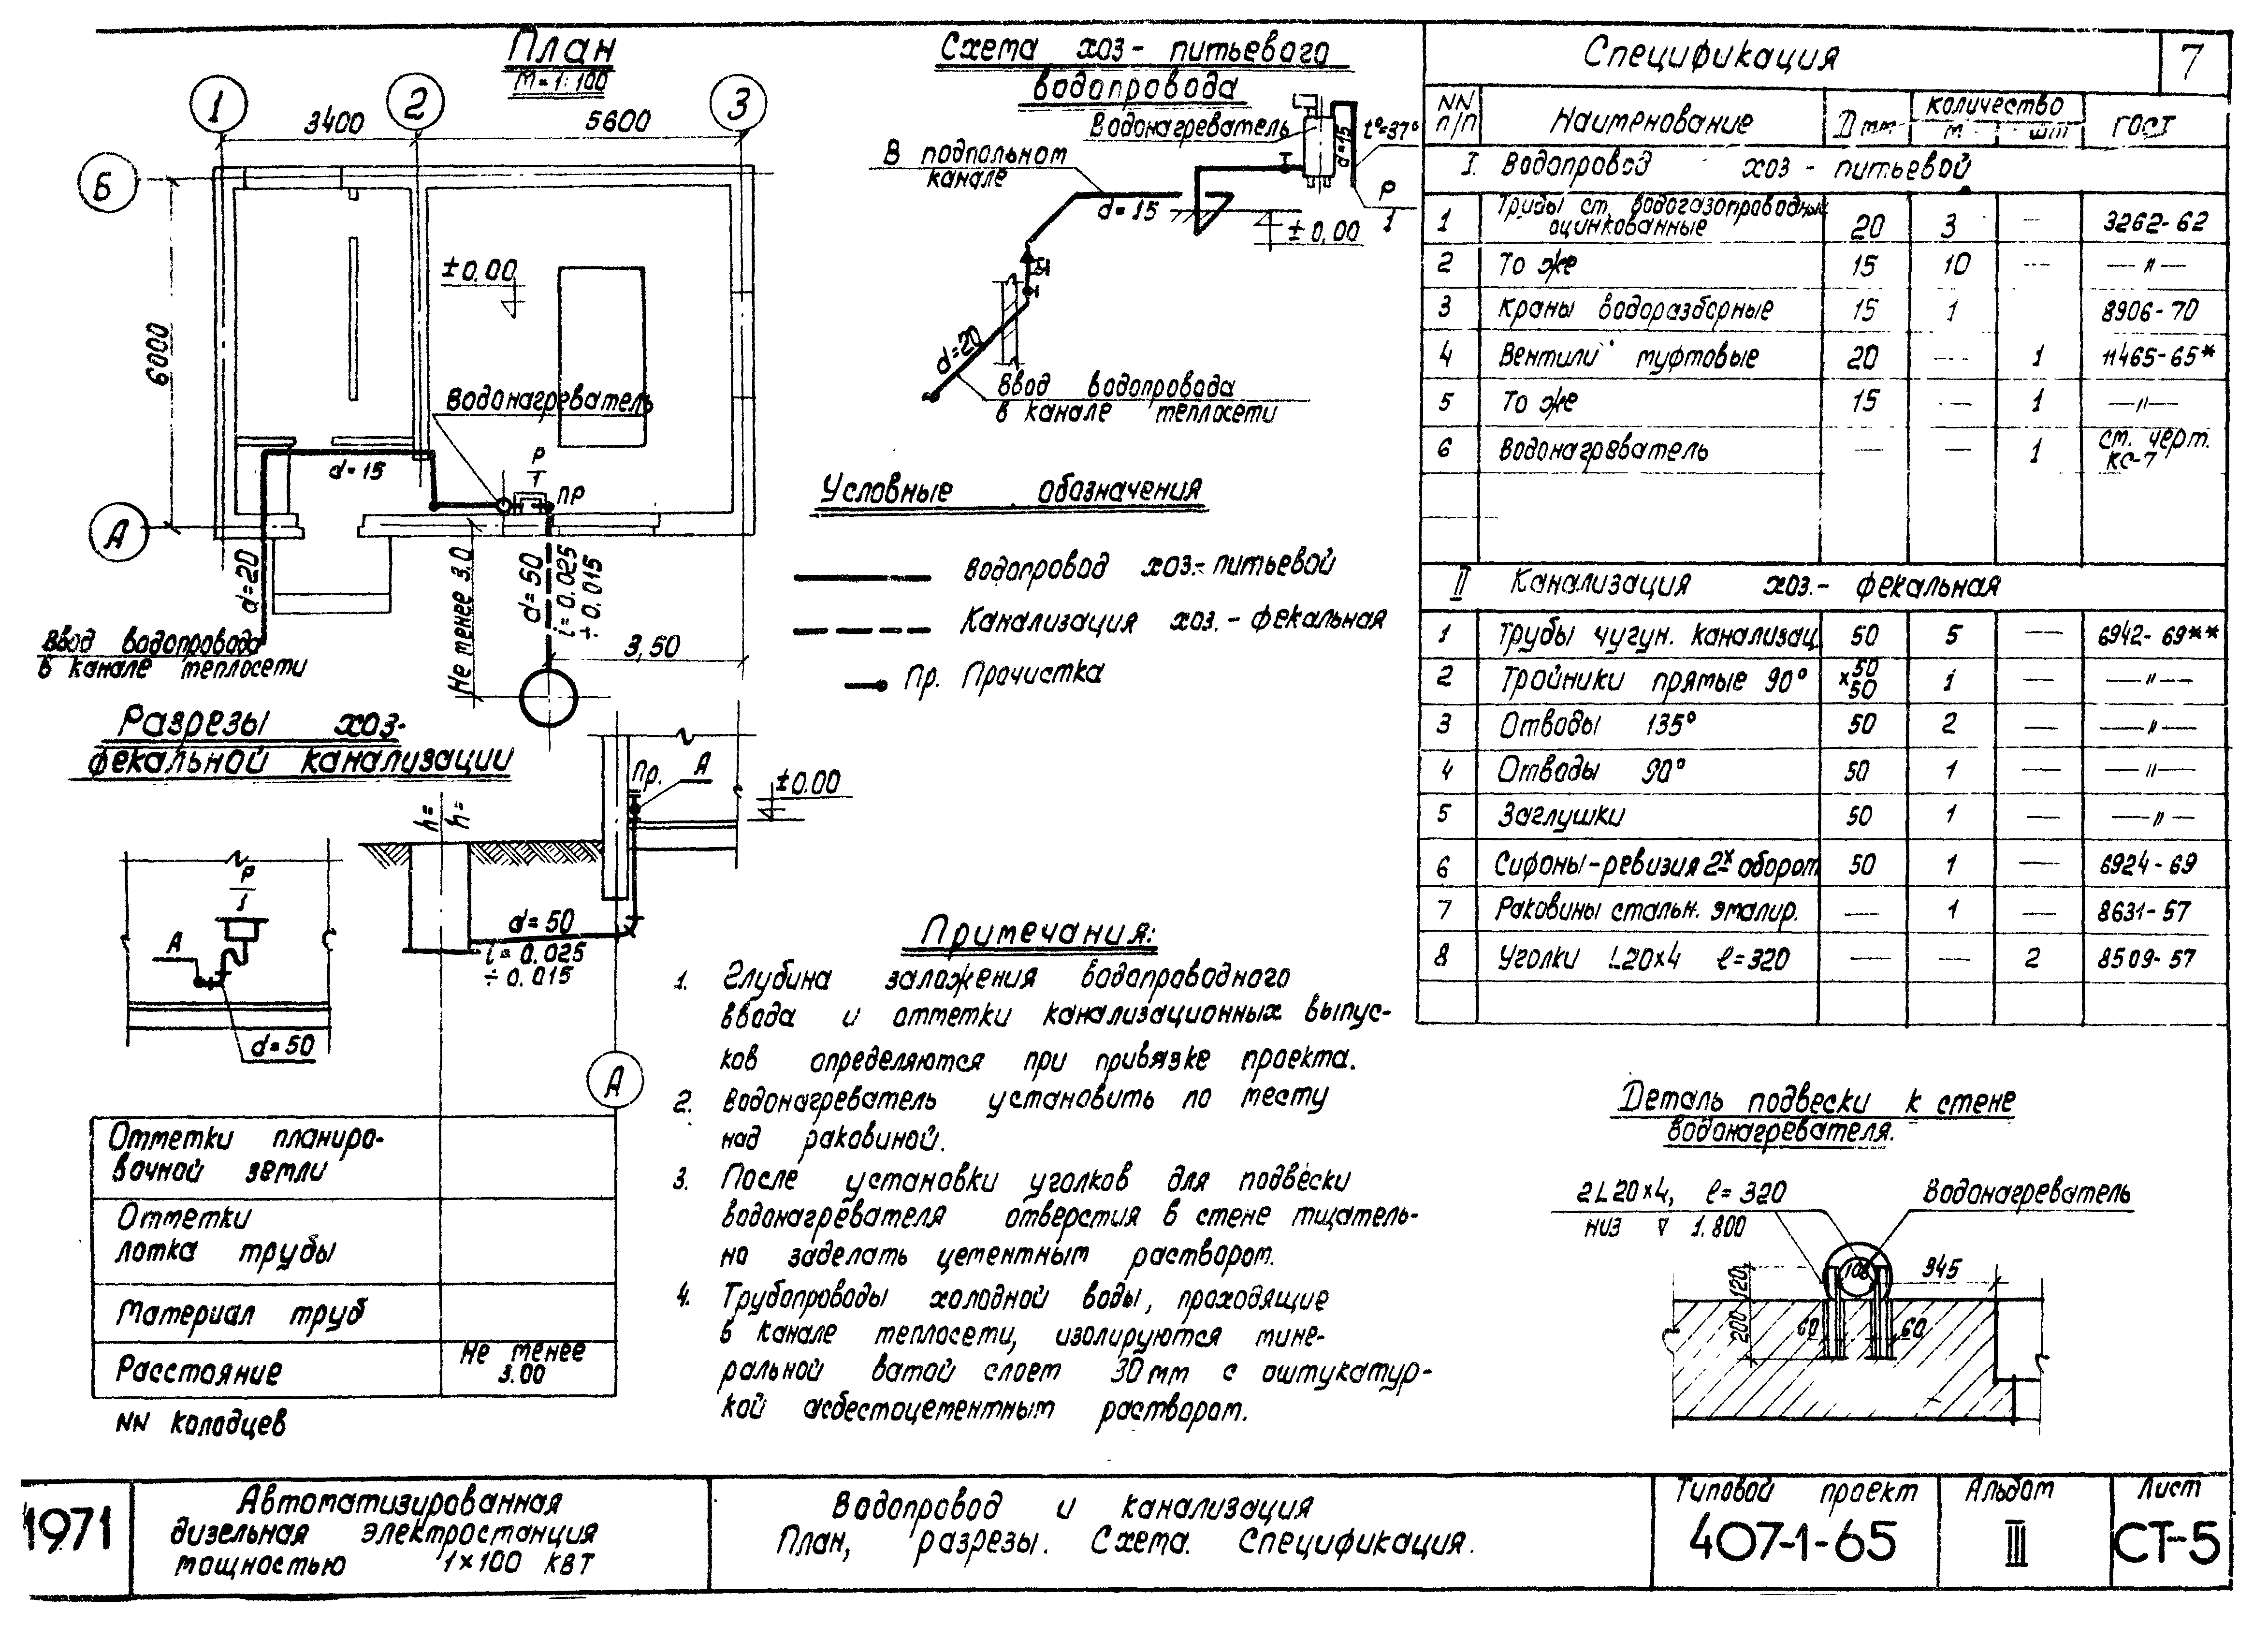 План
М=1:100
1
2
3
3400
5600
Б
6000
±0,00
Водонагреватель
d=15
Р
1
ПР
А
d=20
Не менее 3.0
d=50
i=0.025
÷0.015
3,50
Ввод водопровода
в канале теплосети
Схема хоз-питьевого
водопровода
Водонагреватель
d=15
t°=37°
Р
1
В подпольном
канале
d=15
±0,00
d=20
Ввод водопровода
в канале теплосети
Условные обозначения
Водопровод хоз.-питьевой
Канализация хоз.-фекальная
Пр. Прочистка
Разрезы хоз-
фекальной канализации
h=
h=
Пр.
А
±0.00
Р
1
А
d=50
d=50
i=0.025
÷0.015
А
Отметки планиро-
вочной земли
Отметки
лотка трубы
Материал труб
Расстояние Не менее
3.00
NN колодцев
Примечания:
1. Глубина заложения водопроводного
ввода и отметки канализационных выпус-
ков определяются при привязке проекта.
2. Водонагреватель установить по месту
над раковиной.
3. После установки уголков для подвески
водонагревателя отверстия в стене тщатель-
но заделать цементным раствором.
4. Трубопроводы холодной воды, проходящие
в канале теплосети, изолируются мине-
ральной ватой слоем 30мм с оштукатур-
кой асбестоцементным раствором.
Спецификация
7
NN п/п Наименование Dмм количество ГОСТ
м шт
I. Водопровод хоз-питьевой
1 Трубы ст. водогазопроводные
оцинкованные 20 3 — 3262-62
2 То же 15 10 — —"—
3 Краны водоразборные 15 1 8906-70
4 Вентили муфтовые 20 — 1 11465-65*
5 То же 15 — 1 —"—
6 Водонагреватель — — 1 см. черт.
КС-7
II Канализация хоз.-фекальная
1 Трубы чугун. канализац. 50 5 — 6942-69**
2 Тройники прямые 90° 50x50 1 — —"—
3 Отводы 135° 50 2 — —"—
4 Отводы 90° 50 1 — —"—
5 Заглушки 50 1 — —"—
6 Сифоны-ревизия 2х оборот 50 1 — 6924-69
7 Раковины стальн. эмалир. — 1 — 8631-57
8 Уголки L20x4 ℓ=320 — — 2 8509-57
Деталь подвески к стене
водонагревателя.
2L20x4, ℓ=320
низ ▽ 1.800
Водонагреватель
108
120
200
60
60
945
1971
Автоматизированная
дизельная электростанция
мощностью 1×100 квт
Водопровод и канализация
План, разрезы. Схема. Спецификация.
Типовой проект
407-1-65
Альбом
III
Лист
СТ-5